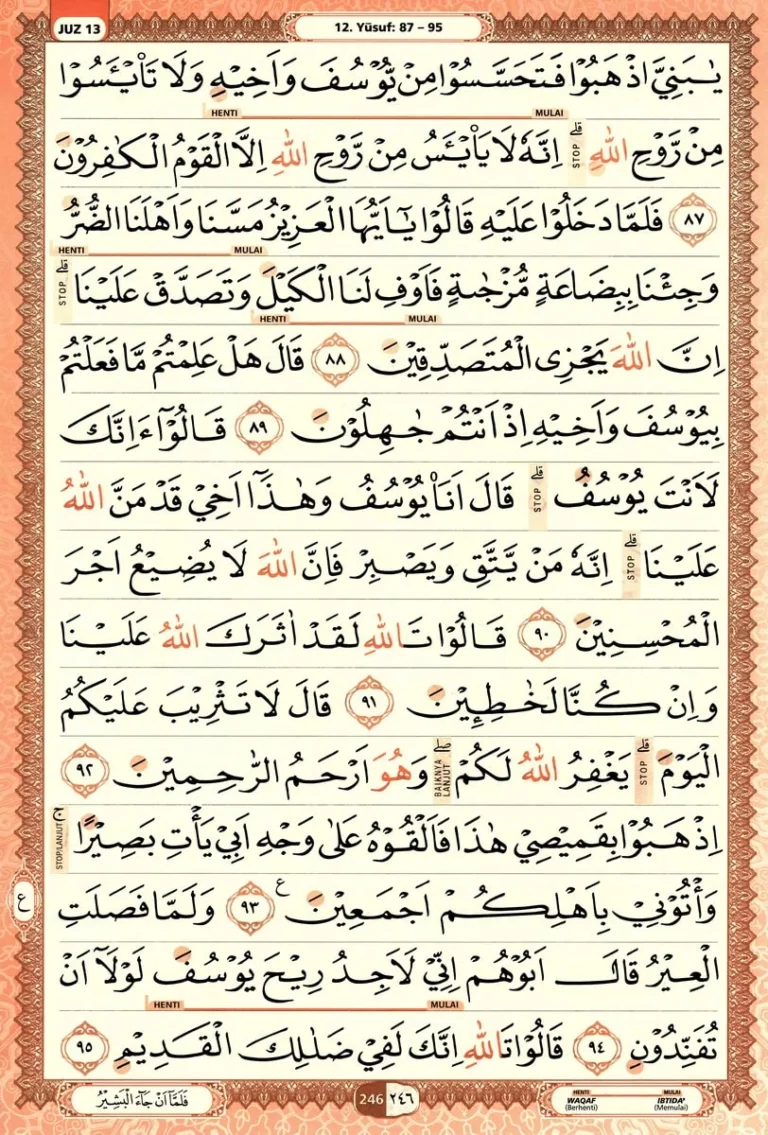 JUZ 13
12. Yūsuf: 87 – 95
يٰبَنِيَّ اذْهَبُوْا فَتَحَسَّسُوْا مِنْ يُّوْسُفَ وَاَخِيْهِ وَلَا تَا۟يْـَٔسُوْا
HENTI MULAI
مِنْ رَّوْحِ اللّٰهِ ۗ STOP اِنَّهٗ لَا يَا۟يْـَٔسُ مِنْ رَّوْحِ اللّٰهِ اِلَّا الْقَوْمُ الْكٰفِرُوْنَ
٨٧ فَلَمَّا دَخَلُوْا عَلَيْهِ قَالُوْا يٰٓاَيُّهَا الْعَزِيْزُ مَسَّنَا وَاَهْلَنَا الضُّرُّ
HENTI MULAI
وَجِئْنَا بِبِضَاعَةٍ مُّزْجٰىةٍ فَاَوْفِ لَنَا الْكَيْلَ وَتَصَدَّقْ عَلَيْنَا ۗ STOP
HENTI MULAI
اِنَّ اللّٰهَ يَجْزِى الْمُتَصَدِّقِيْنَ ٨٨ قَالَ هَلْ عَلِمْتُمْ مَّا فَعَلْتُمْ
بِيُوْسُفَ وَاَخِيْهِ اِذْ اَنْتُمْ جٰهِلُوْنَ ٨٩ قَالُوْٓا ءَاِنَّكَ
لَاَنْتَ يُوْسُفُ ۗ STOP قَالَ اَنَا۠ يُوْسُفُ وَهٰذَآ اَخِيْ قَدْ مَنَّ اللّٰهُ
عَلَيْنَا ۗ STOP اِنَّهٗ مَنْ يَّتَّقِ وَيَصْبِرْ فَاِنَّ اللّٰهَ لَا يُضِيْعُ اَجْرَ
الْمُحْسِنِيْنَ ٩٠ قَالُوْا تَاللّٰهِ لَقَدْ اٰثَرَكَ اللّٰهُ عَلَيْنَا
وَاِنْ كُنَّا لَخٰطِـِٕيْنَ ٩١ قَالَ لَا تَثْرِيْبَ عَلَيْكُمُ
الْيَوْمَ ۗ STOP يَغْفِرُ اللّٰهُ لَكُمْ ۖ BAIKNYA LANJUT وَهُوَ اَرْحَمُ الرّٰحِمِيْنَ ٩٢
اِذْهَبُوْا بِقَمِيْصِيْ هٰذَا فَاَلْقُوْهُ عَلٰى وَجْهِ اَبِيْ يَأْتِ بَصِيْرًا ۚ STOP/LANJUT
وَأْتُوْنِيْ بِاَهْلِكُمْ اَجْمَعِيْنَ ع ٩٣ وَلَمَّا فَصَلَتِ
ع
الْعِيْرُ قَالَ اَبُوْهُمْ اِنِّيْ لَاَجِدُ رِيْحَ يُوْسُفَ لَوْلَآ اَنْ
HENTI MULAI
تُفَنِّدُوْنِ ٩٤ قَالُوْا تَاللّٰهِ اِنَّكَ لَفِيْ ضَلٰلِكَ الْقَدِيْمِ ٩٥
فَلَمَّآ اَنْ جَاۤءَ الْبَشِيْرُ
246 ٢٤٦
HENTI MULAI
WAQAF IBTIDA'
(Berhenti) (Memulai)